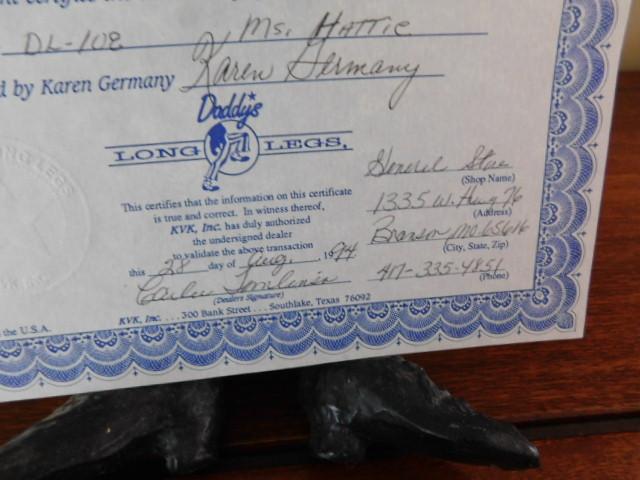 DL-108 Ms. Hattie
d by Karen Germany Karen Germany
Daddy's
LONG LEGS®
This certifies that the information on this certificate
is true and correct. In witness thereof,
KVK, Inc. has duly authorized
the undersigned dealer
to validate the above transaction
this 28 day of Aug. , 1994
(Dealers Signature)
General Store
(Shop Name)
1335 W. Hwy 76
(Address)
Branson Mo. 65616
(City, State, Zip)
417-335-4851
(Phone)
n the U.S.A.
KVK, Inc. . . . 300 Bank Street . . . Southlake, Texas 76092
ONG LEGS